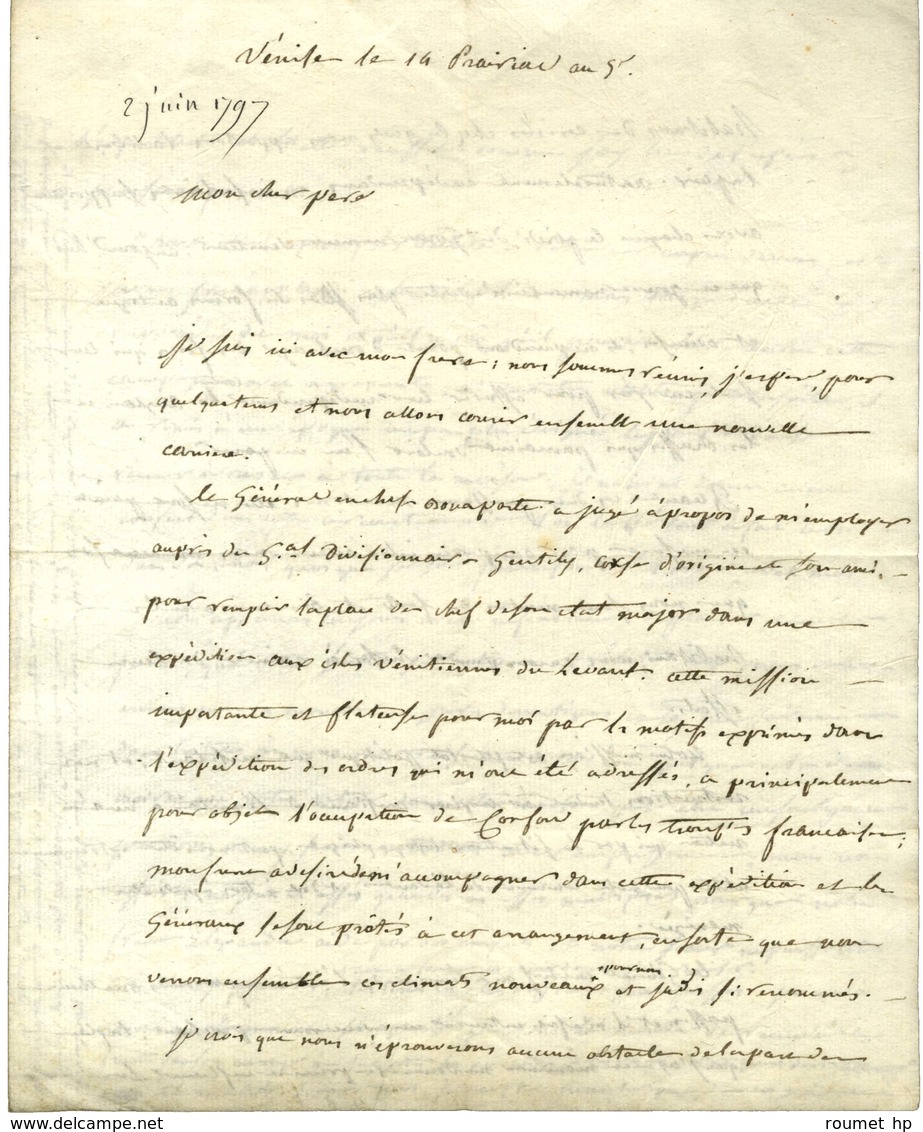 Vénise le 14 Prairial an 5e.
2 juin 1797
mon cher pere
Je suis ici avec mon frere ; nous sommes réunis, j'espere, pour
quelque tems et nous allons courir ensemble une nouvelle
carriere.
le Général en chef Bonaparte a jugé à propos de m'employer
auprès du Gal Divisionnaire Gentily, corse d'origine et son ami,
pour remplir la place de chef de son etat major dans une
expédition aux isles vénitiennes du Levant. cette mission
importante et flateuse pour moi par les motifs exprimés dans
l'expédition des ordres qui m'ont été adressés, a principalement
pour objet l'ocupation de Corfou par les troupes francaises ;
mon frere a desiré de m'accompagner dans cette expédition et les
Généraux se sont prêtés à cet arrangement, ensorte que nous
verrons ensemble ces climats nouveaux pour nous et jadis si renommés.
Je crois que nous n'éprouverons aucun obstacle de la part des
roumet hp